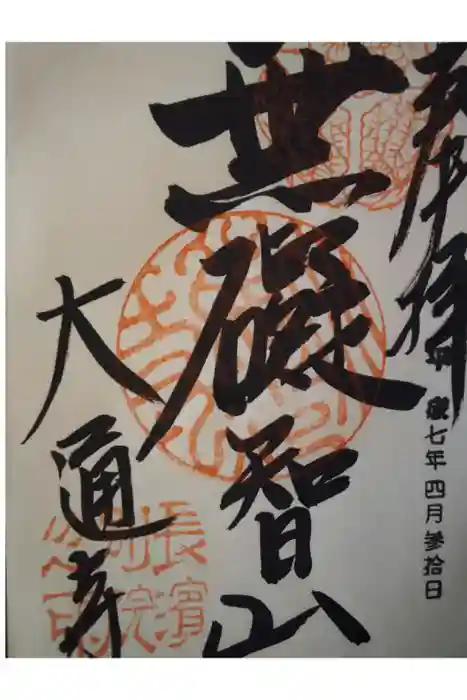 奉拝
七年四月参拾日
無礙智山
大通寺
長濱
別院